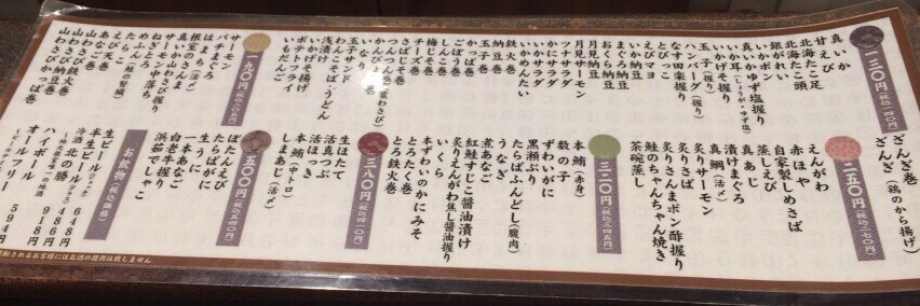 一三〇円(税込一四〇円)
真いか
甘えび
北海たこ足
北海たこ頭
銀がれい
いかポン
真いかゆず塩握り
いか耳(しょうが・ゆず塩)
いかげそ握り
玉子(握り)
ハンバーグ(握り)
なす田楽握り
とびっこ
えびマヨ
いか納豆
まぐろ納豆
おくら納豆
月見納豆
月見サーモン
ツナサラダ
かにサラダ
いかサラダ
いかめんたい
鉄火巻
納豆巻
玉子巻
かっぱ巻
ごぼう巻
しそ巻
チーズ巻
梅じそ巻
さばじそ巻
つんつん巻
かんぴょう巻
いなり
玉子サンド
わんこそば・うどん
浅漬け
いかげそ揚げ
ポテトフライ
いももち
一九〇円(税込二〇五円)
サーモン
バチまぐろ
はまち(活〆)
根室のさんま
真いかわさび握り
サーモン中落ち
ねぎとろ
たらこ
えび天巻
山わさび巻
山わさび納豆巻
山わさび鉄火巻
山わさびかっぱ巻
ざんぎ巻
ざんぎ(鶏のから揚げ)
二五〇円(税込二七〇円)
えんがわ
赤ほや
自家製しめさば
蒸しえび
真あじ
漬けまぐろ
真鯛(活〆)
炙りサーモン
炙りさば
炙りさんまポン酢握り
鮭のちゃんちゃん焼き
茶碗蒸し
三二〇円(税込三四五円)
本鮪(赤身)
数の子
ずわいがに
黒瀬ぶり
たらばふんどし(腹肉)
うなぎ
煮あなご
紅鮭すじこ醤油漬け
炙りえんがわ焦し醤油握り
いくら
本ずわいのかにみそ
とろたく巻
とろ鉄火巻
三八〇円(税込四一〇円)
生ほたて
活つぶ
活ほっき
本鮪(中トロ)
しまあじ(活〆)
五〇〇円(税込五四〇円)
ぼたんえび
たらばがに
生うに
一本あなご
白老牛握り
浜茹でしゃこ
お飲物(税込価格)
生ビール 648円
半生ビール 486円
冷酒 北の勝 918円
ハイボール 486円
オールフリー 594円
されるお客様にはお酒の提供は致しません